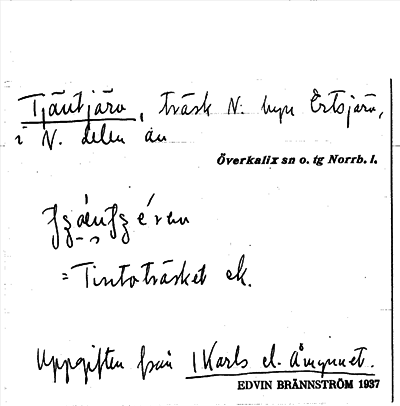 Tjäutjärv, träsk N. byn Ertsjärv,
i N. delen av
Överkalix sn o. tg Norrb. l.
= Tintoträsket ek.
Uppgiften från 1 Karls el. Åmynnet.
EDVIN BRÄNNSTRÖM 1937